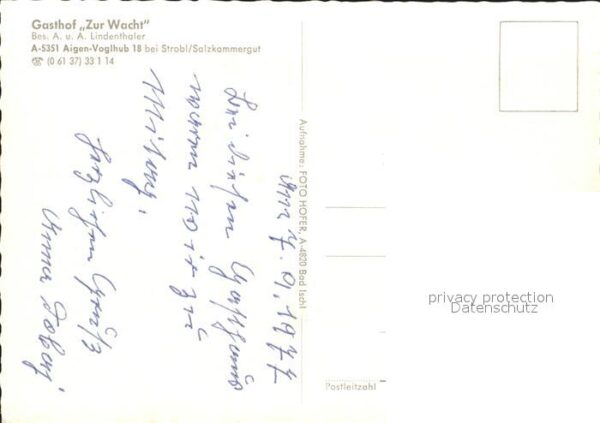 Gasthof „Zur Wacht"
Bes. A. u. A. Lindenthaler
A-5351 Aigen-Voglhub 18 bei Strobl/Salzkammergut
☏ (0 61 37) 33 1 14
Aufnahme: FOTO HOFER, A-4820 Bad Ischl
am 7. 9. 1977
waren wir zu
Mittag.
Herzlichen Gruß
Anna
Postleitzahl
privacy protection
Datenschutz